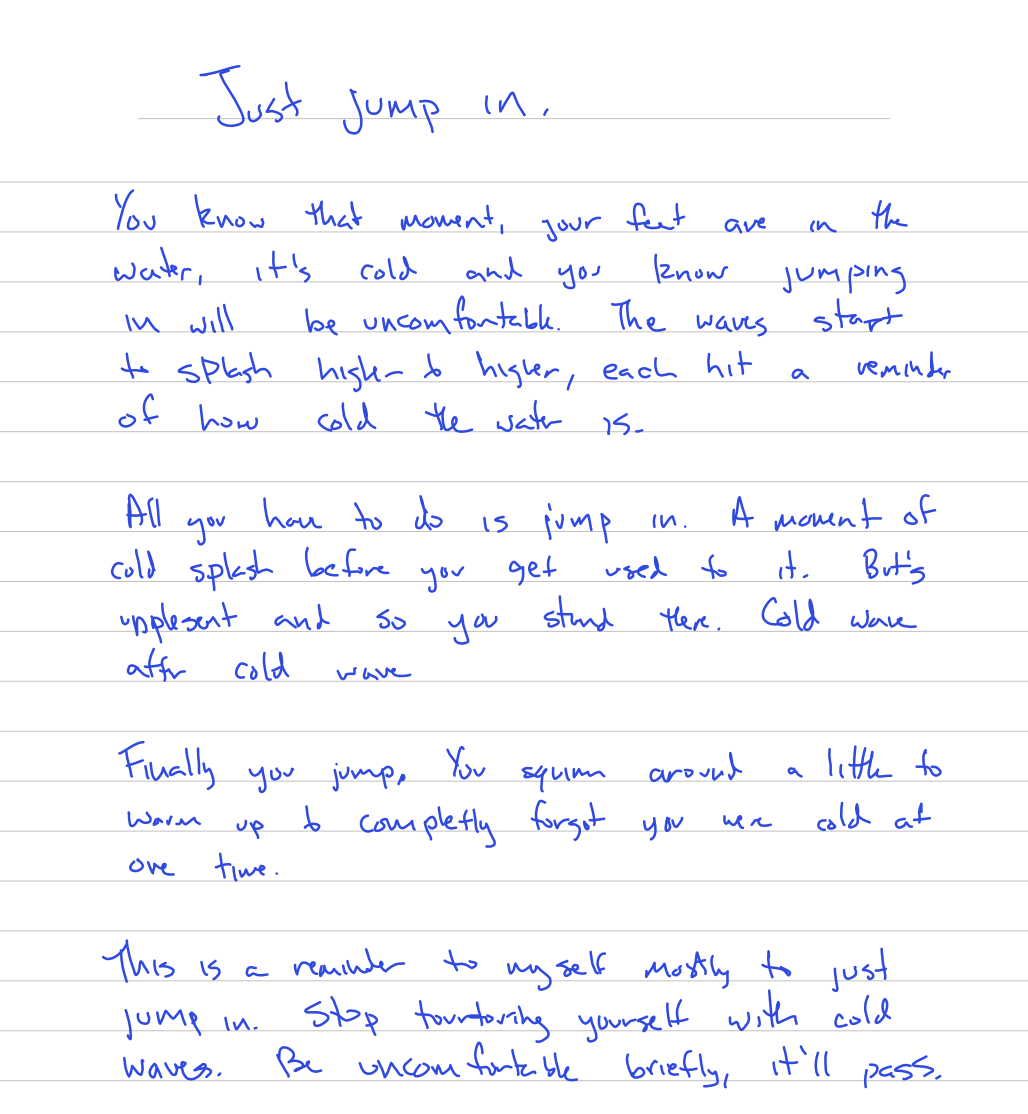 Just jump in.
You know that moment, your feet are in the
water, it's cold and you know jumping
in will be uncomfortable. The waves start
to splash higher & higher, each hit a reminder
of how cold the water is.
All you have to do is jump in. A moment of
cold splash before you get used to it. But's
upplesent and so you stand there. Cold wave
after cold wave
Finally you jump. You squirm around a little to
warm up & completly forgot you were cold at
one time.
This is a reminder to myself mostly to just
jump in. Stop tourtoring yourself with cold
waves. Be uncomfortable briefly, it'll pass.